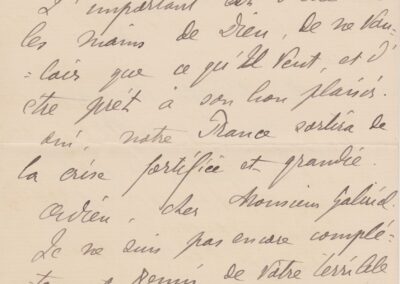 L'important est d'être
les mains de Dieu, de ne vou-
-loir que ce qu'Il veut, et d'
être prêt à son bon plaisir.
oui, notre France sortira de
la crise fortifiée et grandie.
Adieu, cher Monsieur Gabriel.
Je ne suis pas encore complè-
remis de votre terrible